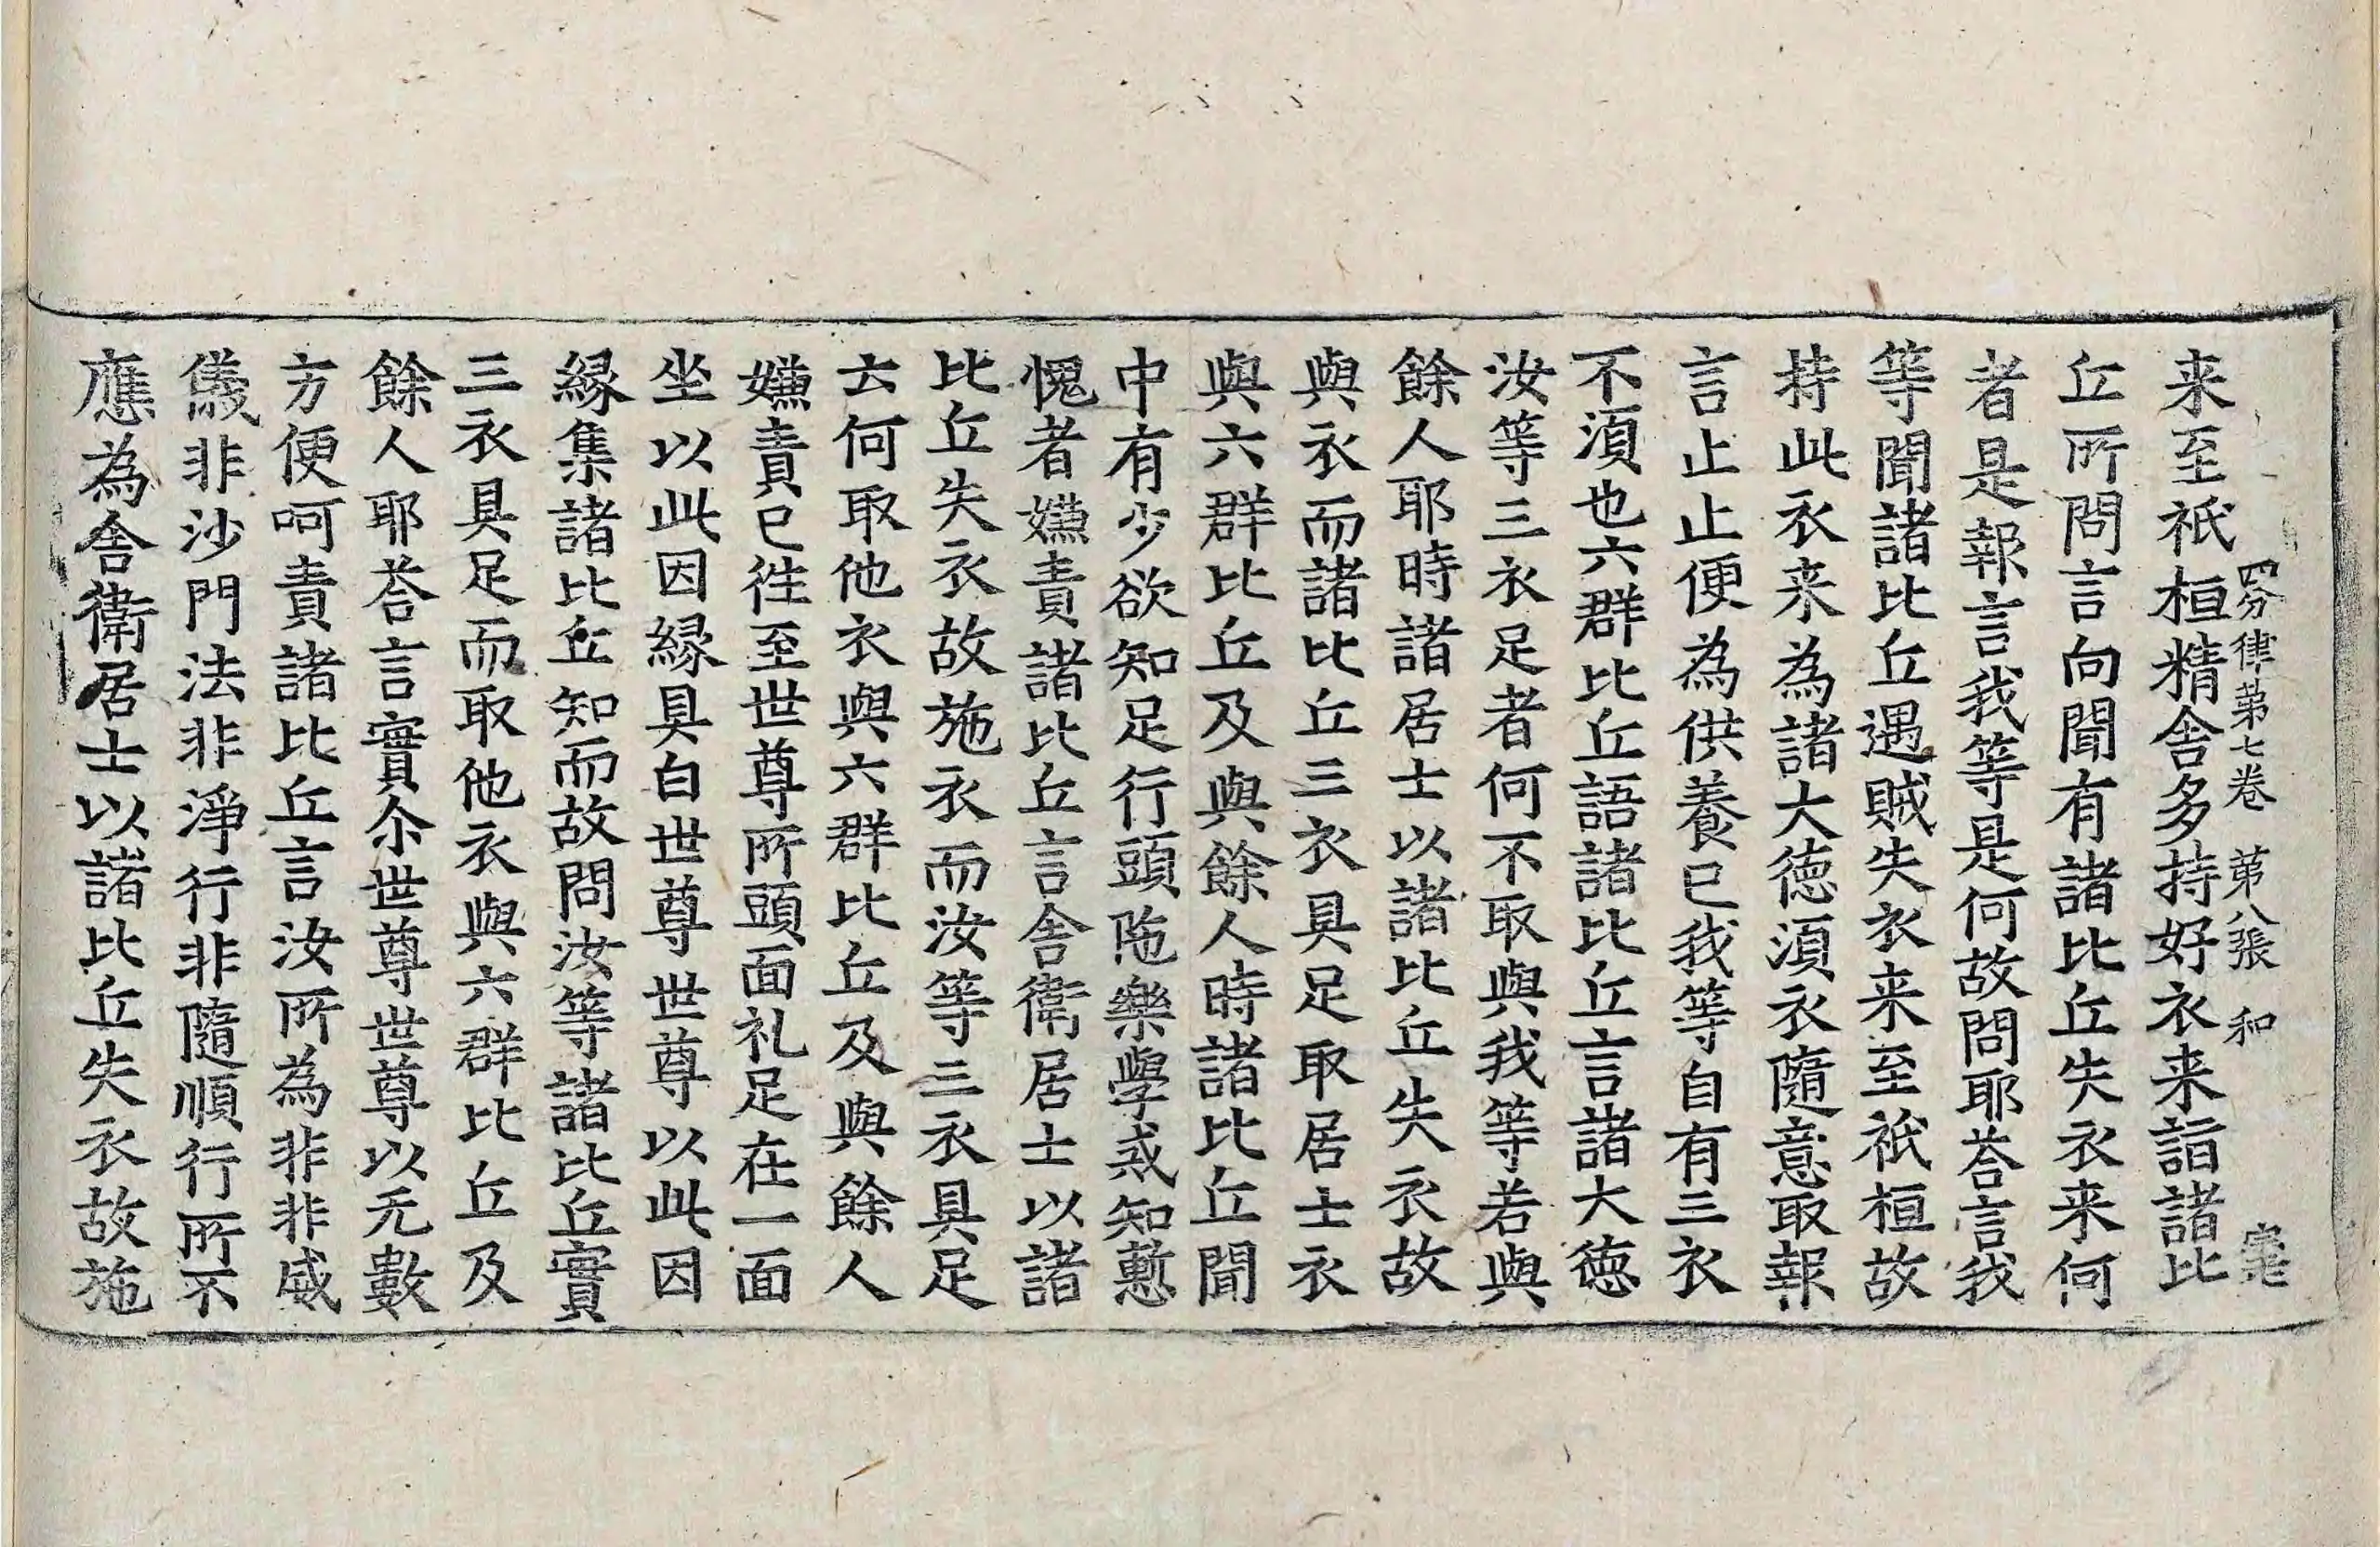 四分律第七卷 第八張 和
来至祇桓精舍多持好衣来詣諸比
丘所問言向聞有諸比丘失衣来何
者是報言我等是何故問耶荅言我
等聞諸比丘遇賊失衣来至祇桓故
持此衣来為諸大徳湏衣隨意取報
言止止便為供養已我等自有三衣
不湏也六群比丘語諸比丘言諸大徳
汝等三衣足者何不取與我等若與
餘人耶時諸居士以諸比丘失衣故
與衣而諸比丘三衣具足取居士衣
與六群比丘及與餘人時諸比丘聞
中有少欲知足行頭陁樂學戒知慙
愧者嫌責諸比丘言舍衛居士以諸
比丘失衣故施衣而汝等三衣具足
云何取他衣與六群比丘及與餘人
嫌責已徃至世尊所頭面礼足在一面
坐以此因縁具白世尊世尊以此因
縁集諸比丘知而故問汝等諸比丘實
三衣具足而取他衣與六群比丘及
餘人耶荅言實尒世尊世尊以无數
方便呵責諸比丘言汝所為非非威
儀非沙門法非淨行非隨順行所不
應為舍衛居士以諸比丘失衣故施